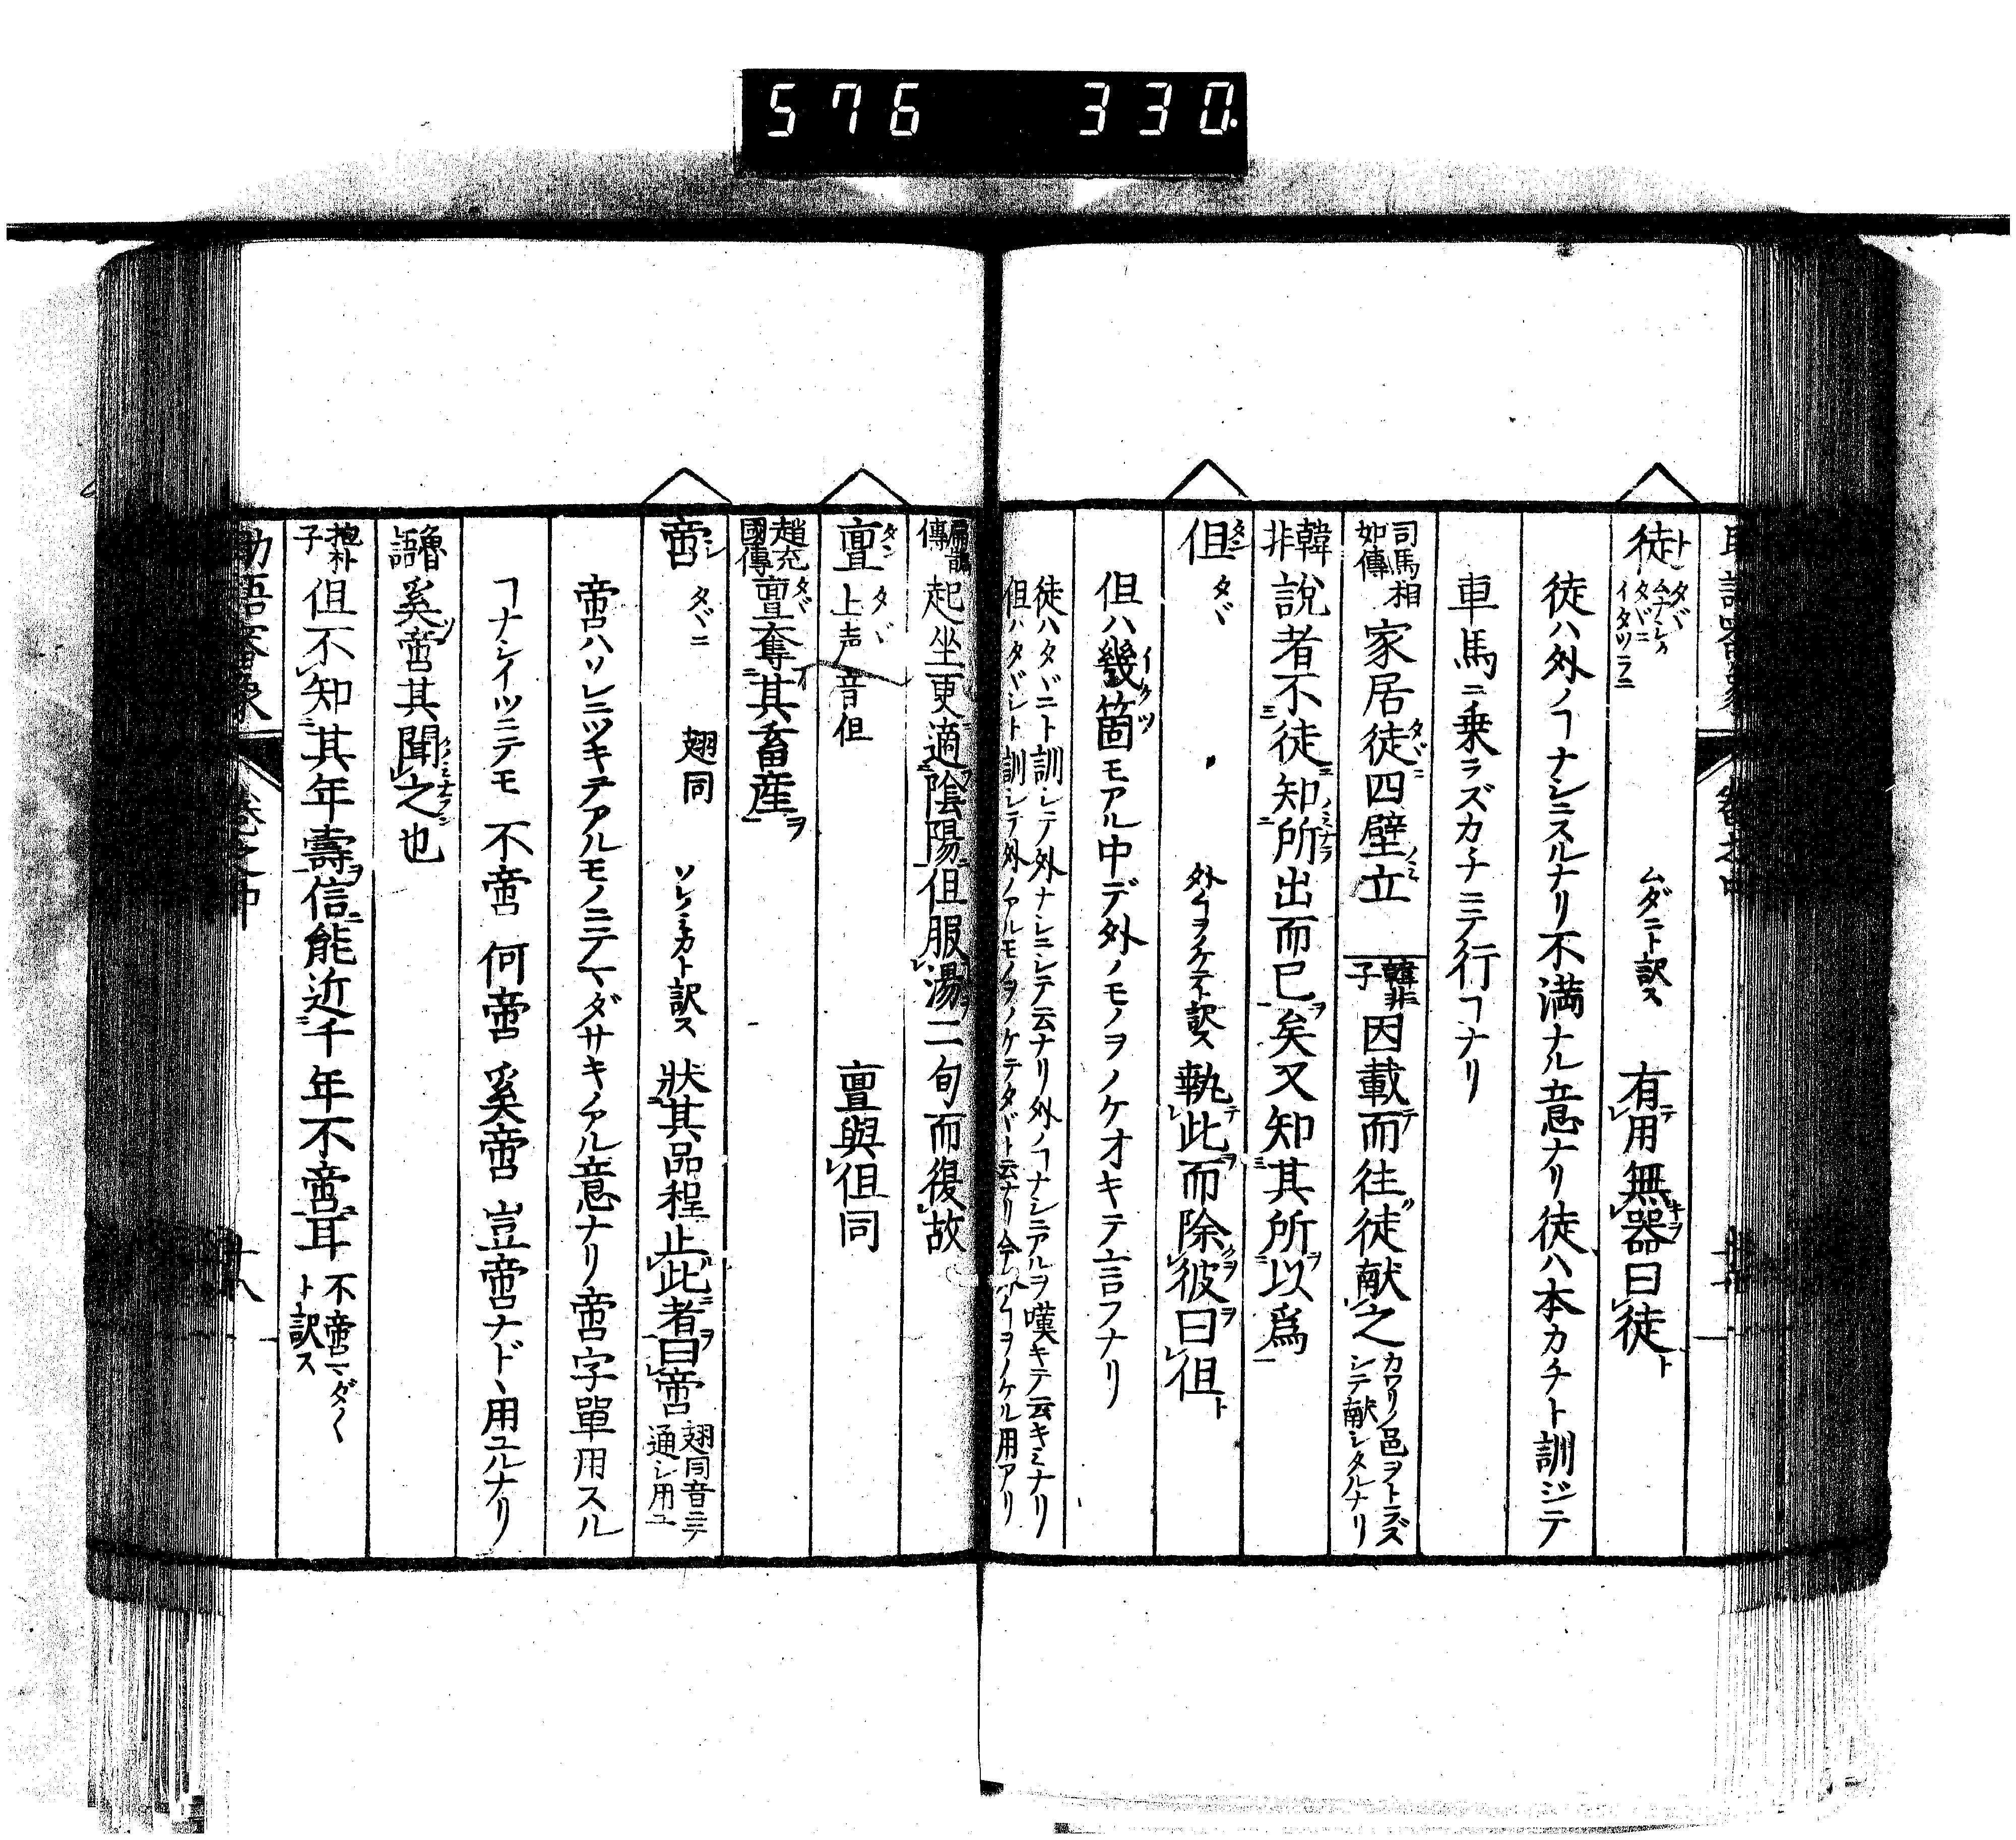 576 330.
徒 ト タヾ ムナシク タヾニ イタヅラニ ムダニト訳ス 有用無器曰徒
徒ハ外ノヿナシニスルナリ不満ナル意ナリ徒ハ本カチト訓ジテ
車馬ニ乗ラズカチニテ行ヿナリ
司馬相如傳 家居徒四壁立 韓非子 因載而往徒献之 カワリノ邑ヲトラズシテ献シタルナリ
韓非 說者不徒知所出而已矣又知其所以爲
但 タン タヾ 外ヿヲノケテト訳ス 執此而除彼曰但
但ハ幾箇モアル中デ外ノモノヲノケオキテ言フナリ
徒ハタヾニト訓シテ外ナシニシテ云ナリ外ノヿナシニアルヲ嘆キテ云キミナリ
但ハタヾシト訓シテ外ノアルモノヲノケテタヾト云ナリ
扁鵲傳 起坐更適陰陽但服湯二旬而復故
亶 タン タヾ 上声 音但 亶與但同
趙充國傳 亶奪其畜産
啻 シ タヾニ 翅同 ソレノミカト訳ス 狀其品程止此者曰啻 翅同音ニテ通シ用ユ
啻ハソレニツキテアルモノニテマダサキノアル意ナリ啻字單用スル
ヿナシイツニテモ 不啻 何啻 奚啻 豈啻ナド、用ユルナリ
魯語 奚啻其聞之也
抱朴子 但不知其年壽信能近千年不啻耳 不啻マダ〱ト訳ス
助語審象 巻之中 十八